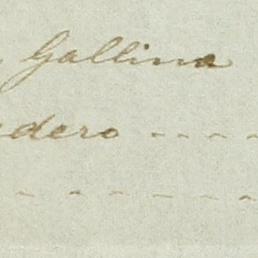 Gallina
dero - - - -
- - - - - -